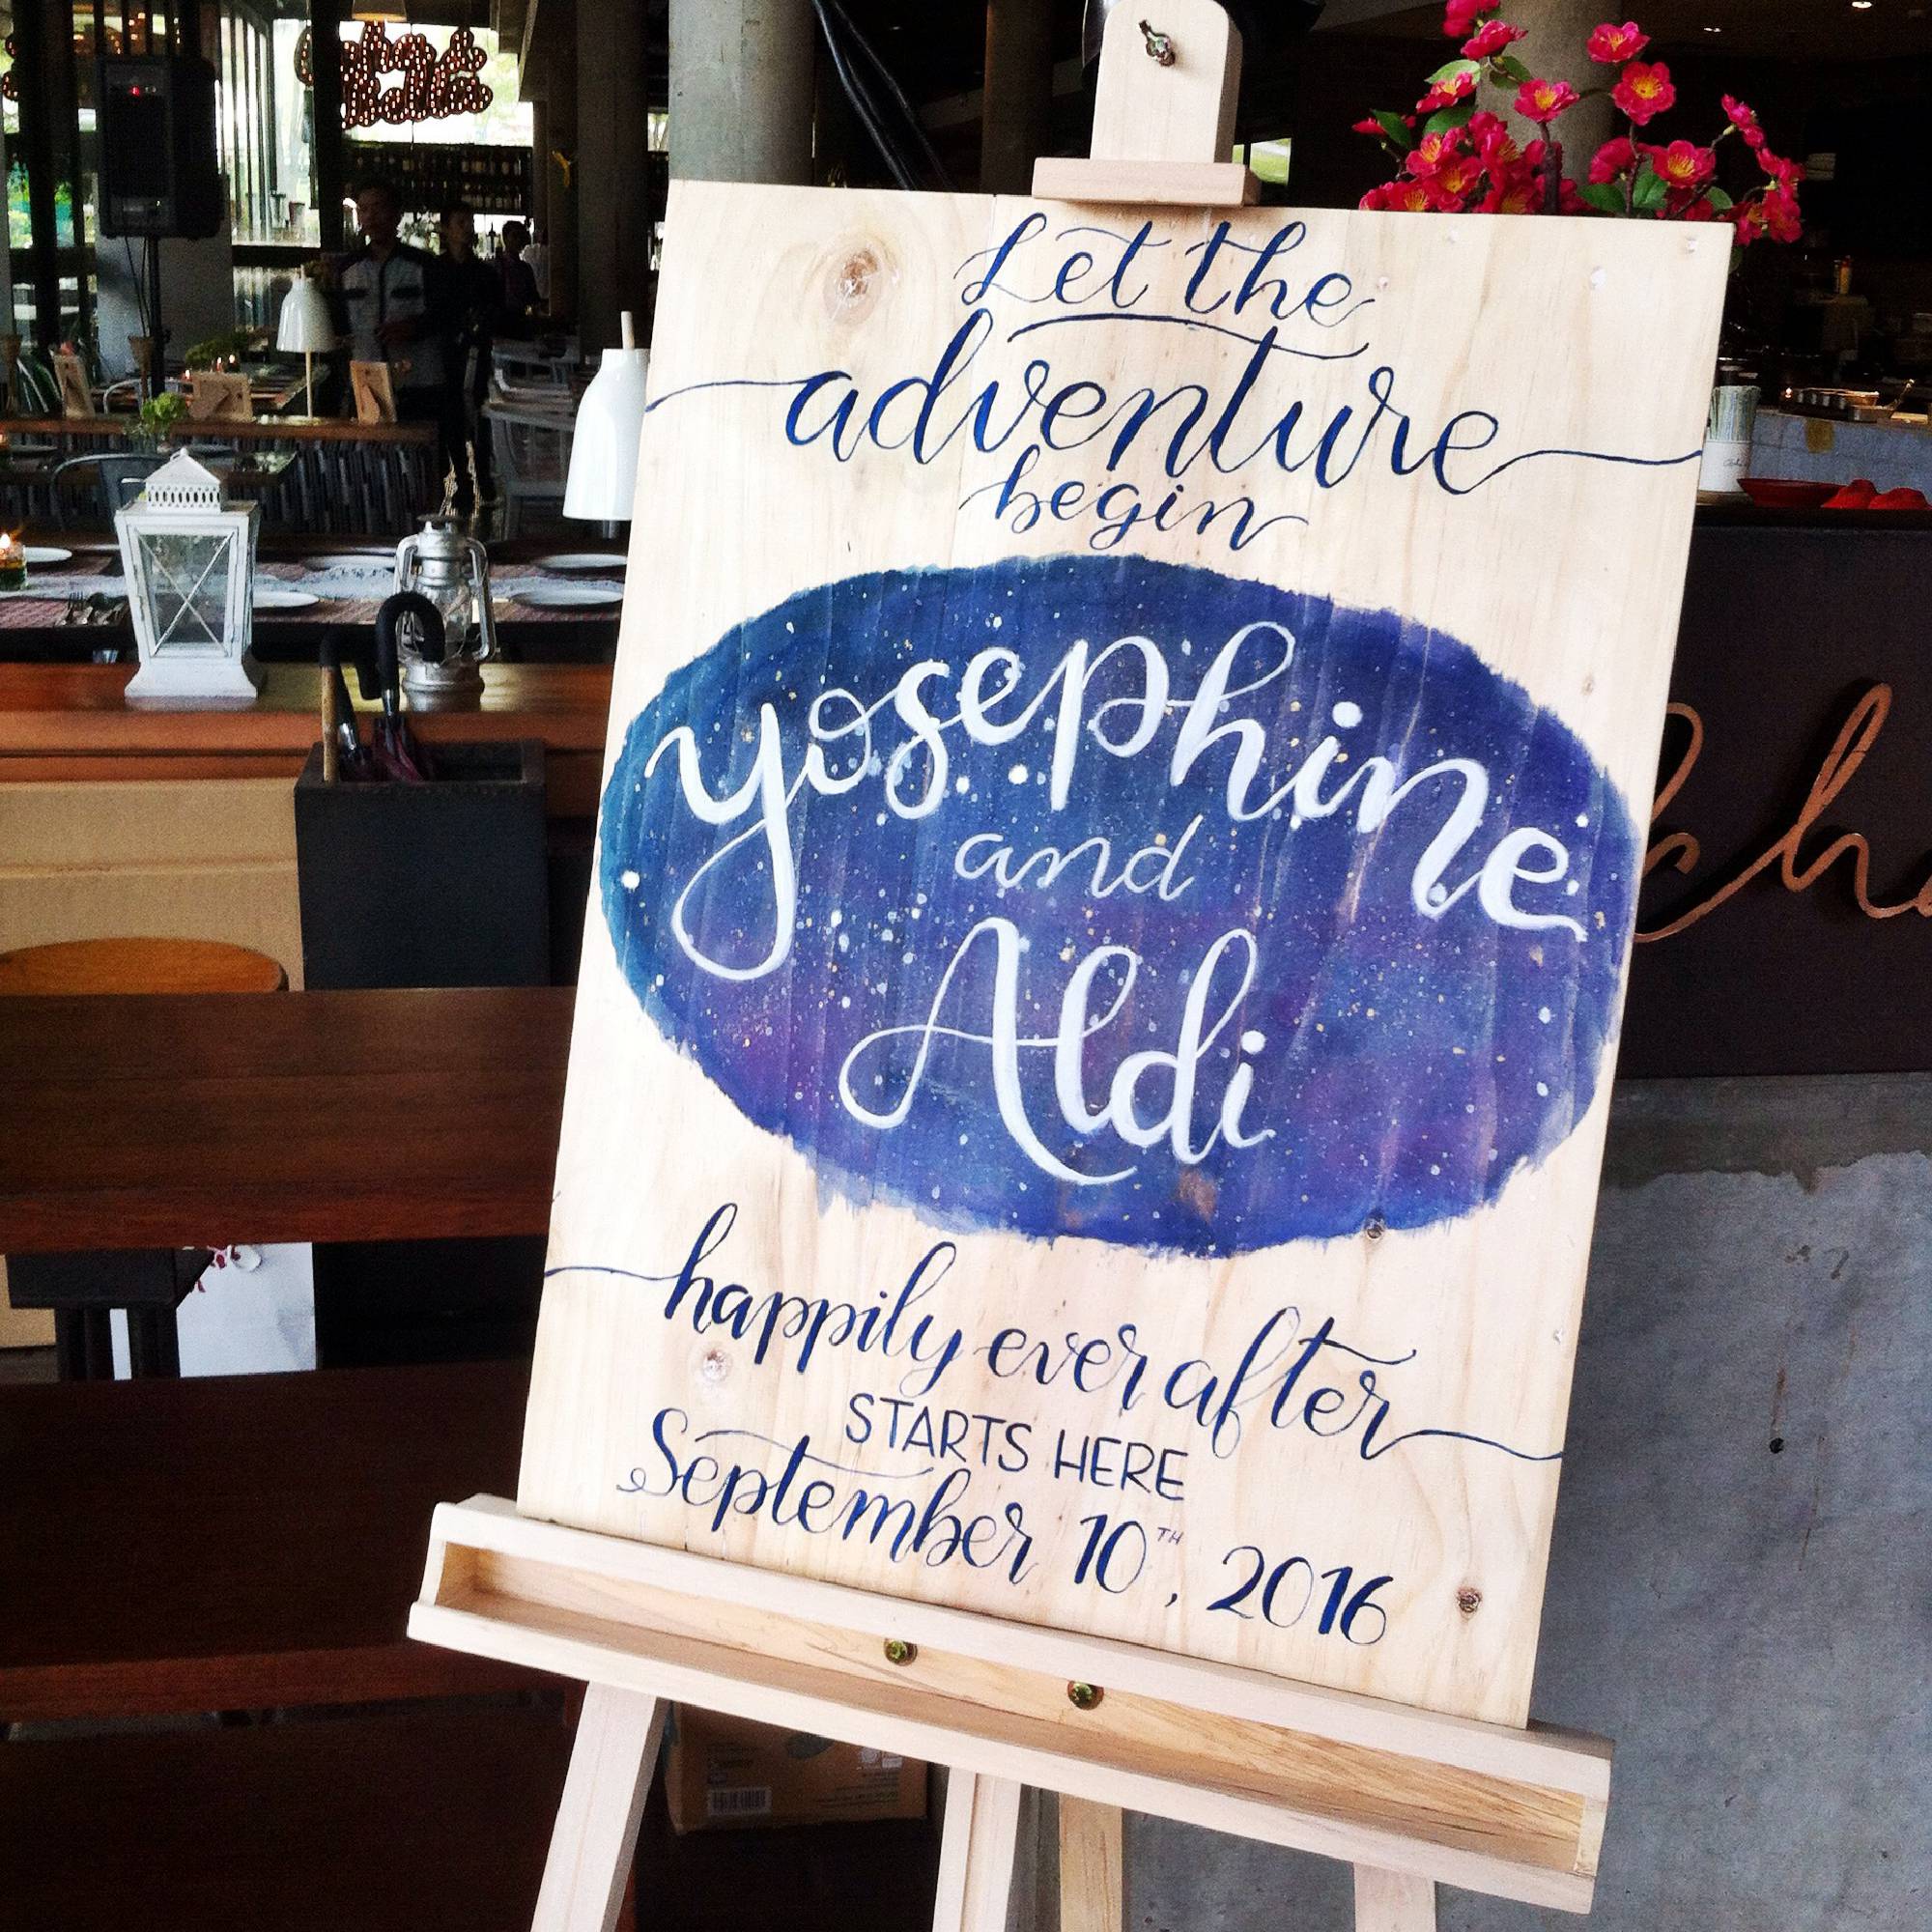 Let the
adventure
begin
Yosephine
and
Aldi
happily ever after
STARTS HERE
September 10TH, 2016